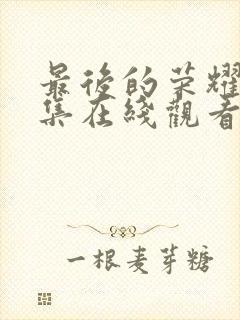 最後的荣耀
集在綫觀看
一根麦芽糖